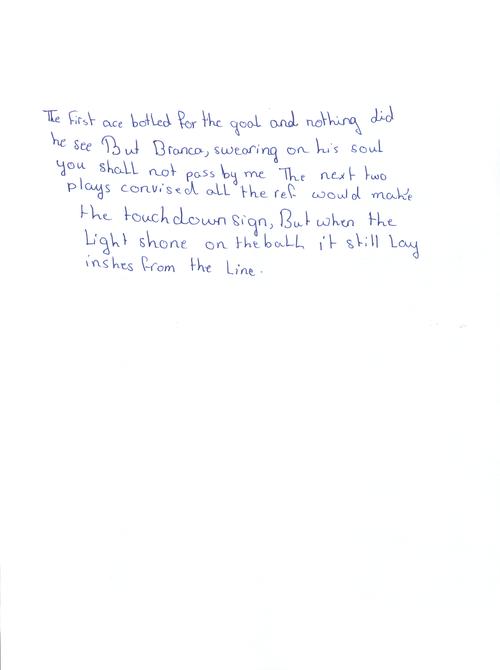 The first ace botled for the goal and nothing did
he see But Branca, swearing on his soul
you shall not pass by me The next two
plays convised all the ref. would make
the touchdown sign, But when the
Light shone on the ball it still Lay
inshes from the Line.